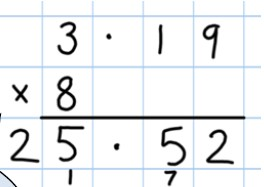 3 . 1 9
× 8
2 5 . 5 2
1 7